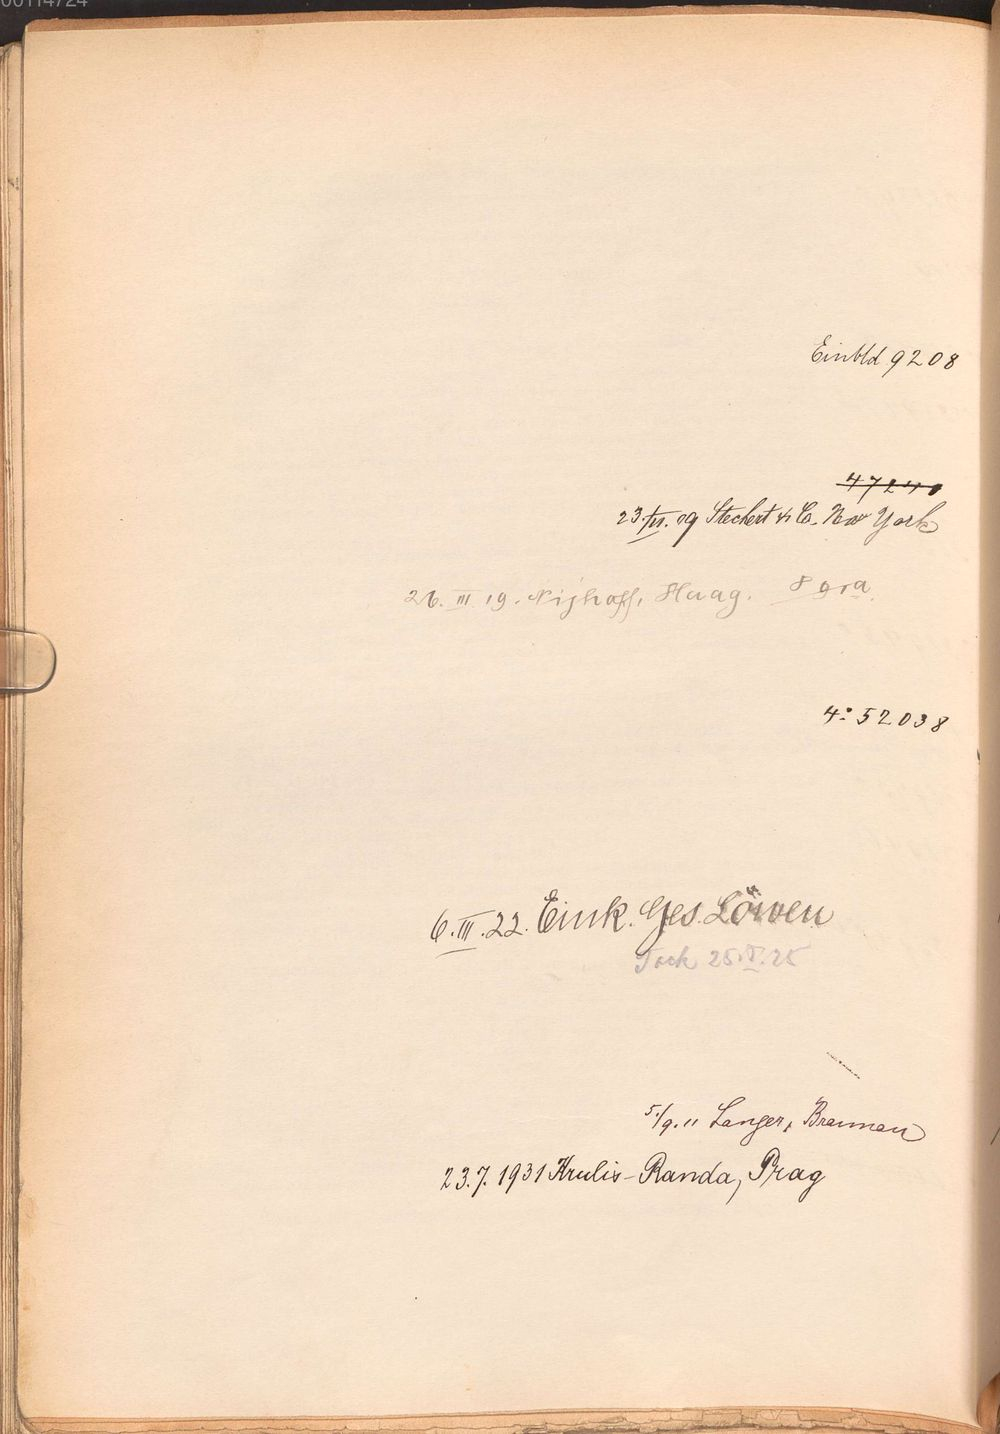 00114724
Einbld 9208
4724
23. . 09 Stechert & Co. New York
26. III 19. Nijhoff, Haag.
4° 52038
6.III.22. Eink. Ges. Löwen
25.V.25
5./9.11 Langer, Braunau
23.7.1931 Krulis-Randa, Prag